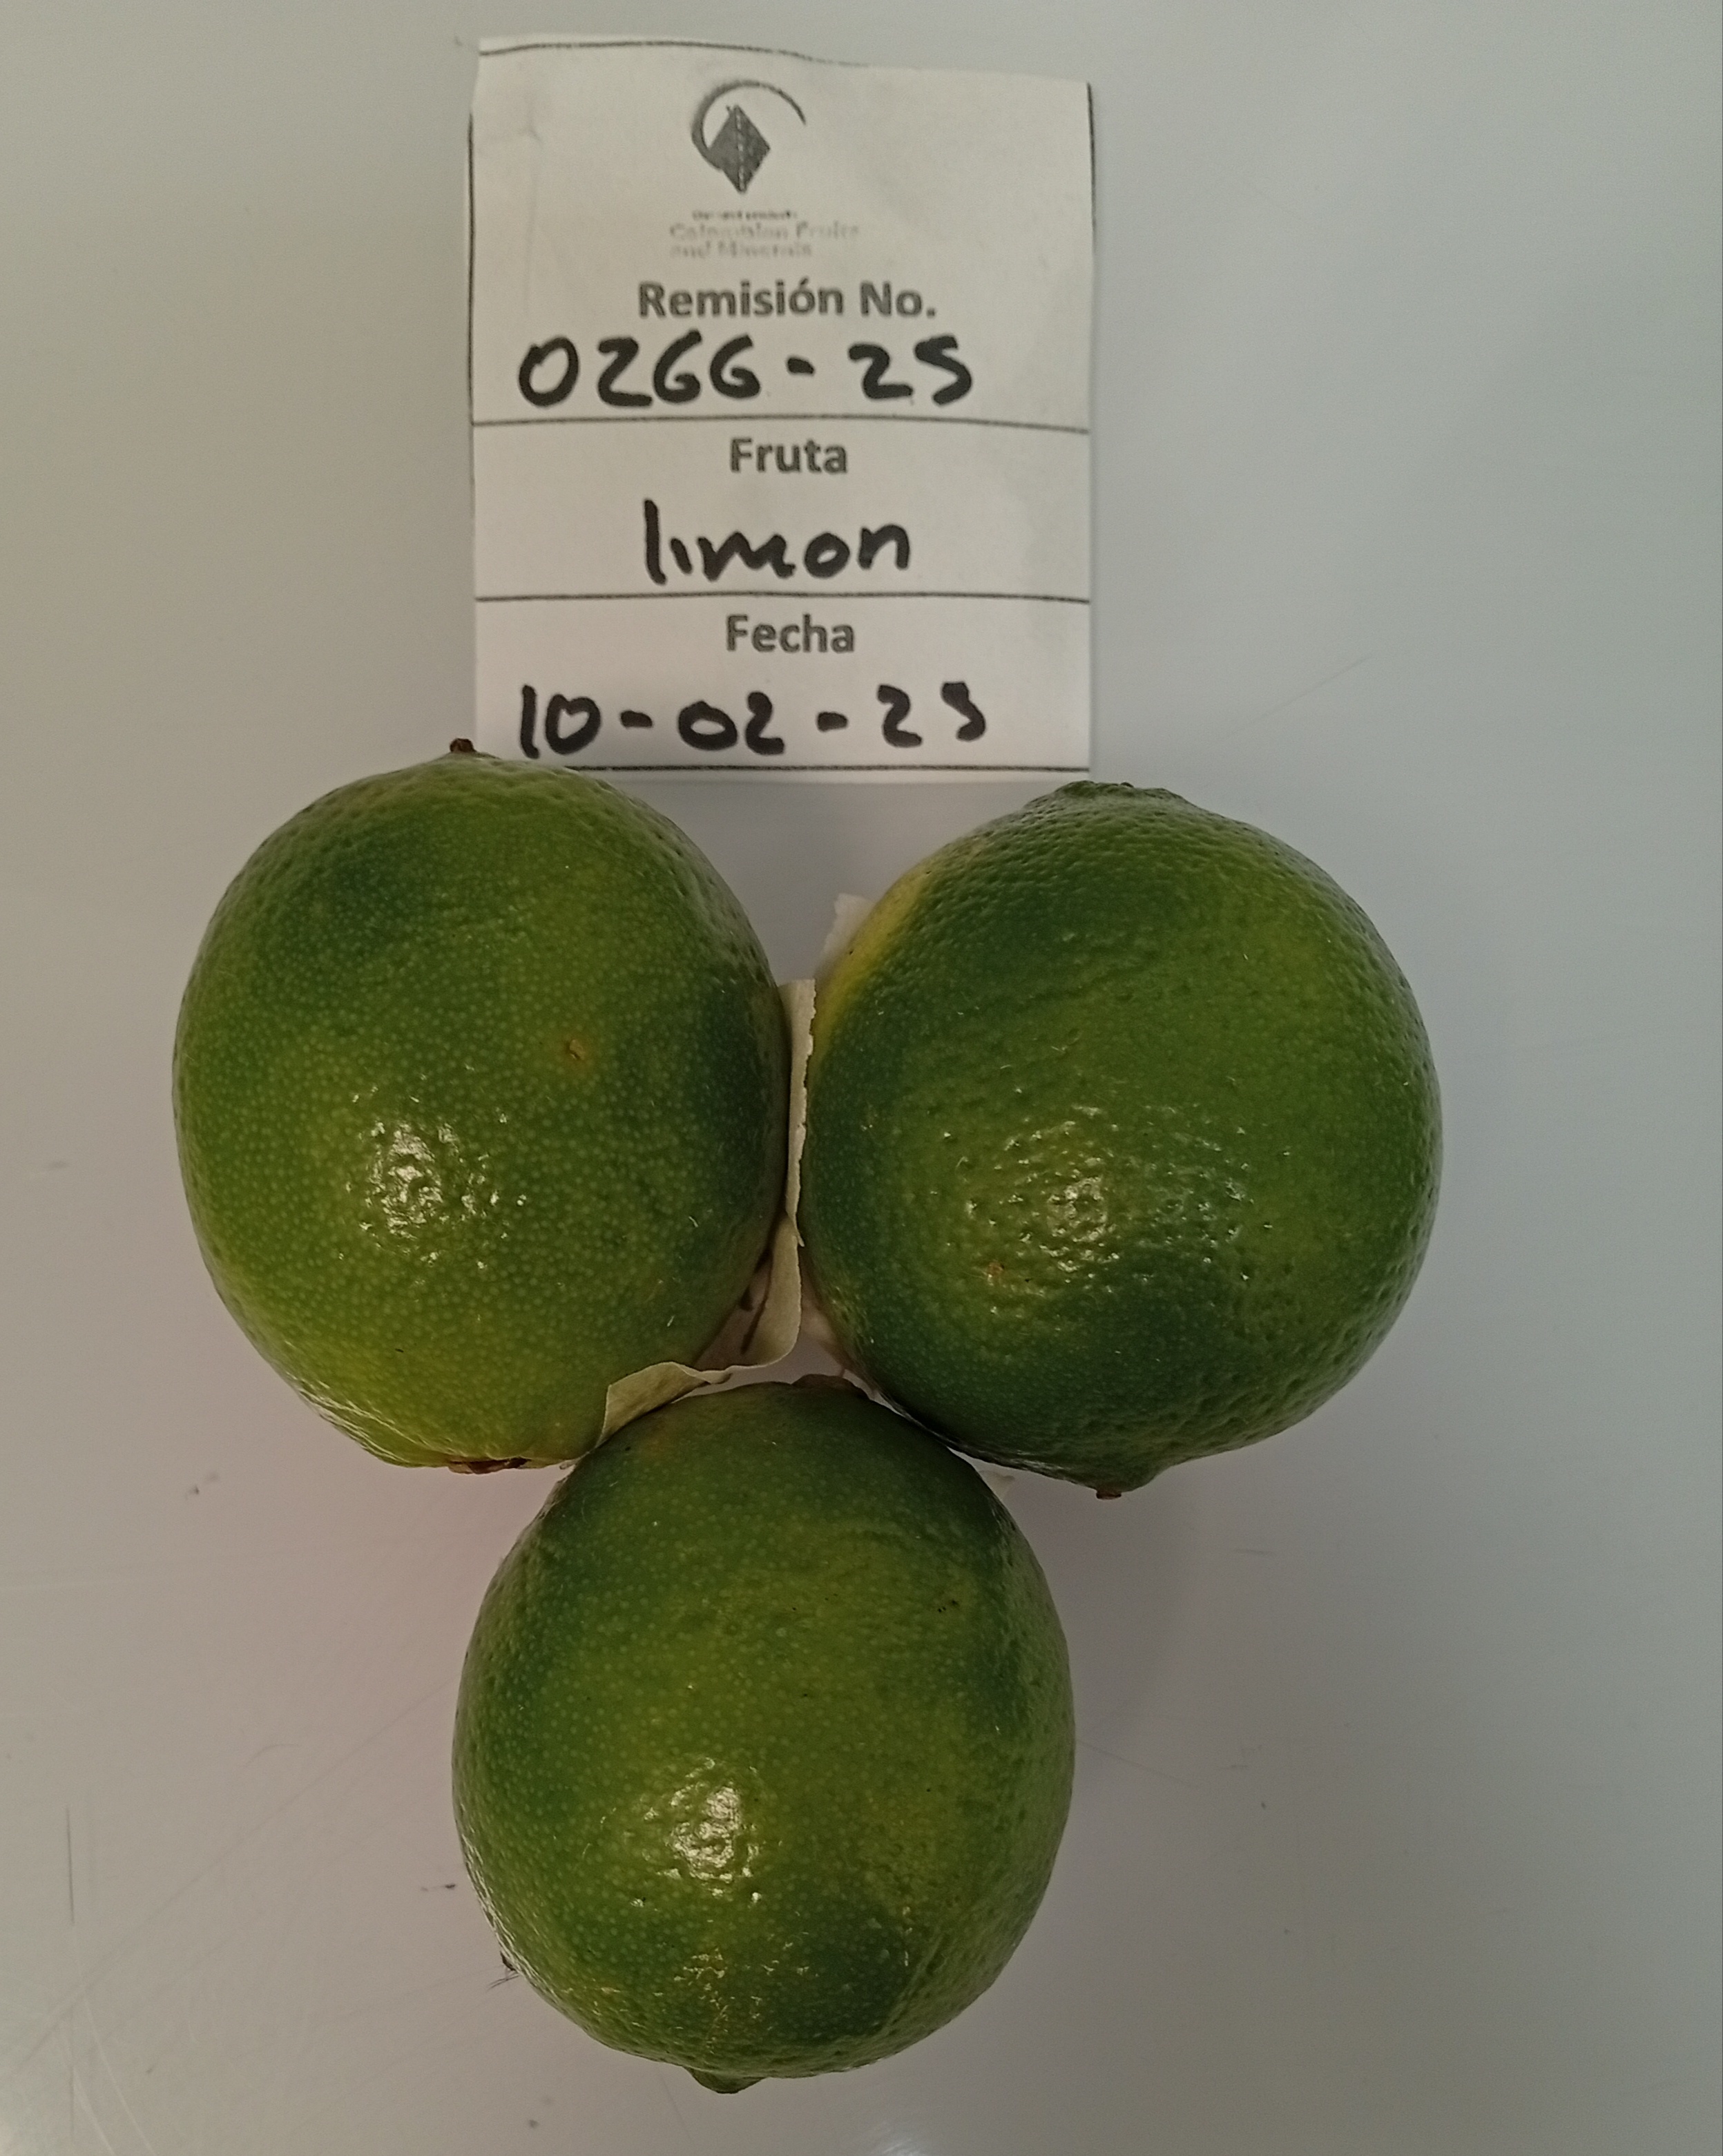 Colombian Fruits
and Minerals
Remisión No.
0266-25
Fruta
limon
Fecha
10-02-25